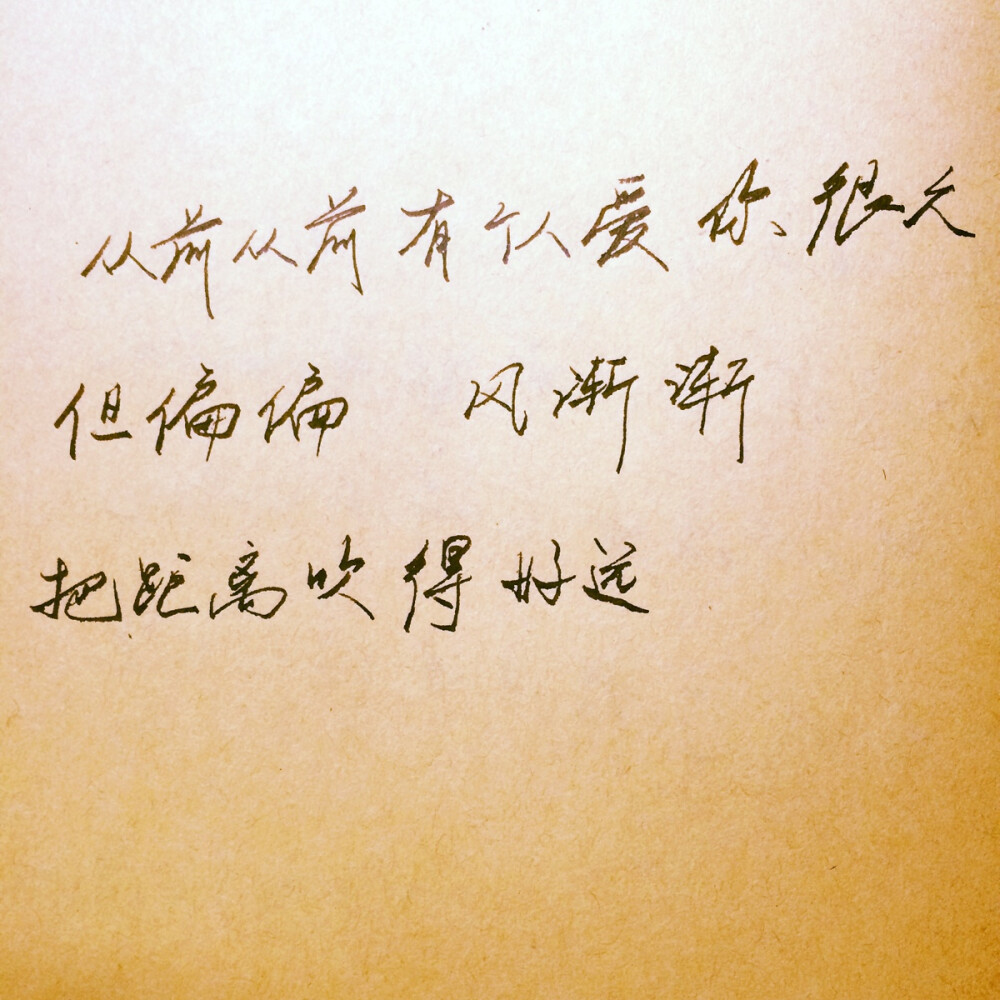 从前从前有个人爱你很久
但偏偏 风渐渐
把距离吹得好远